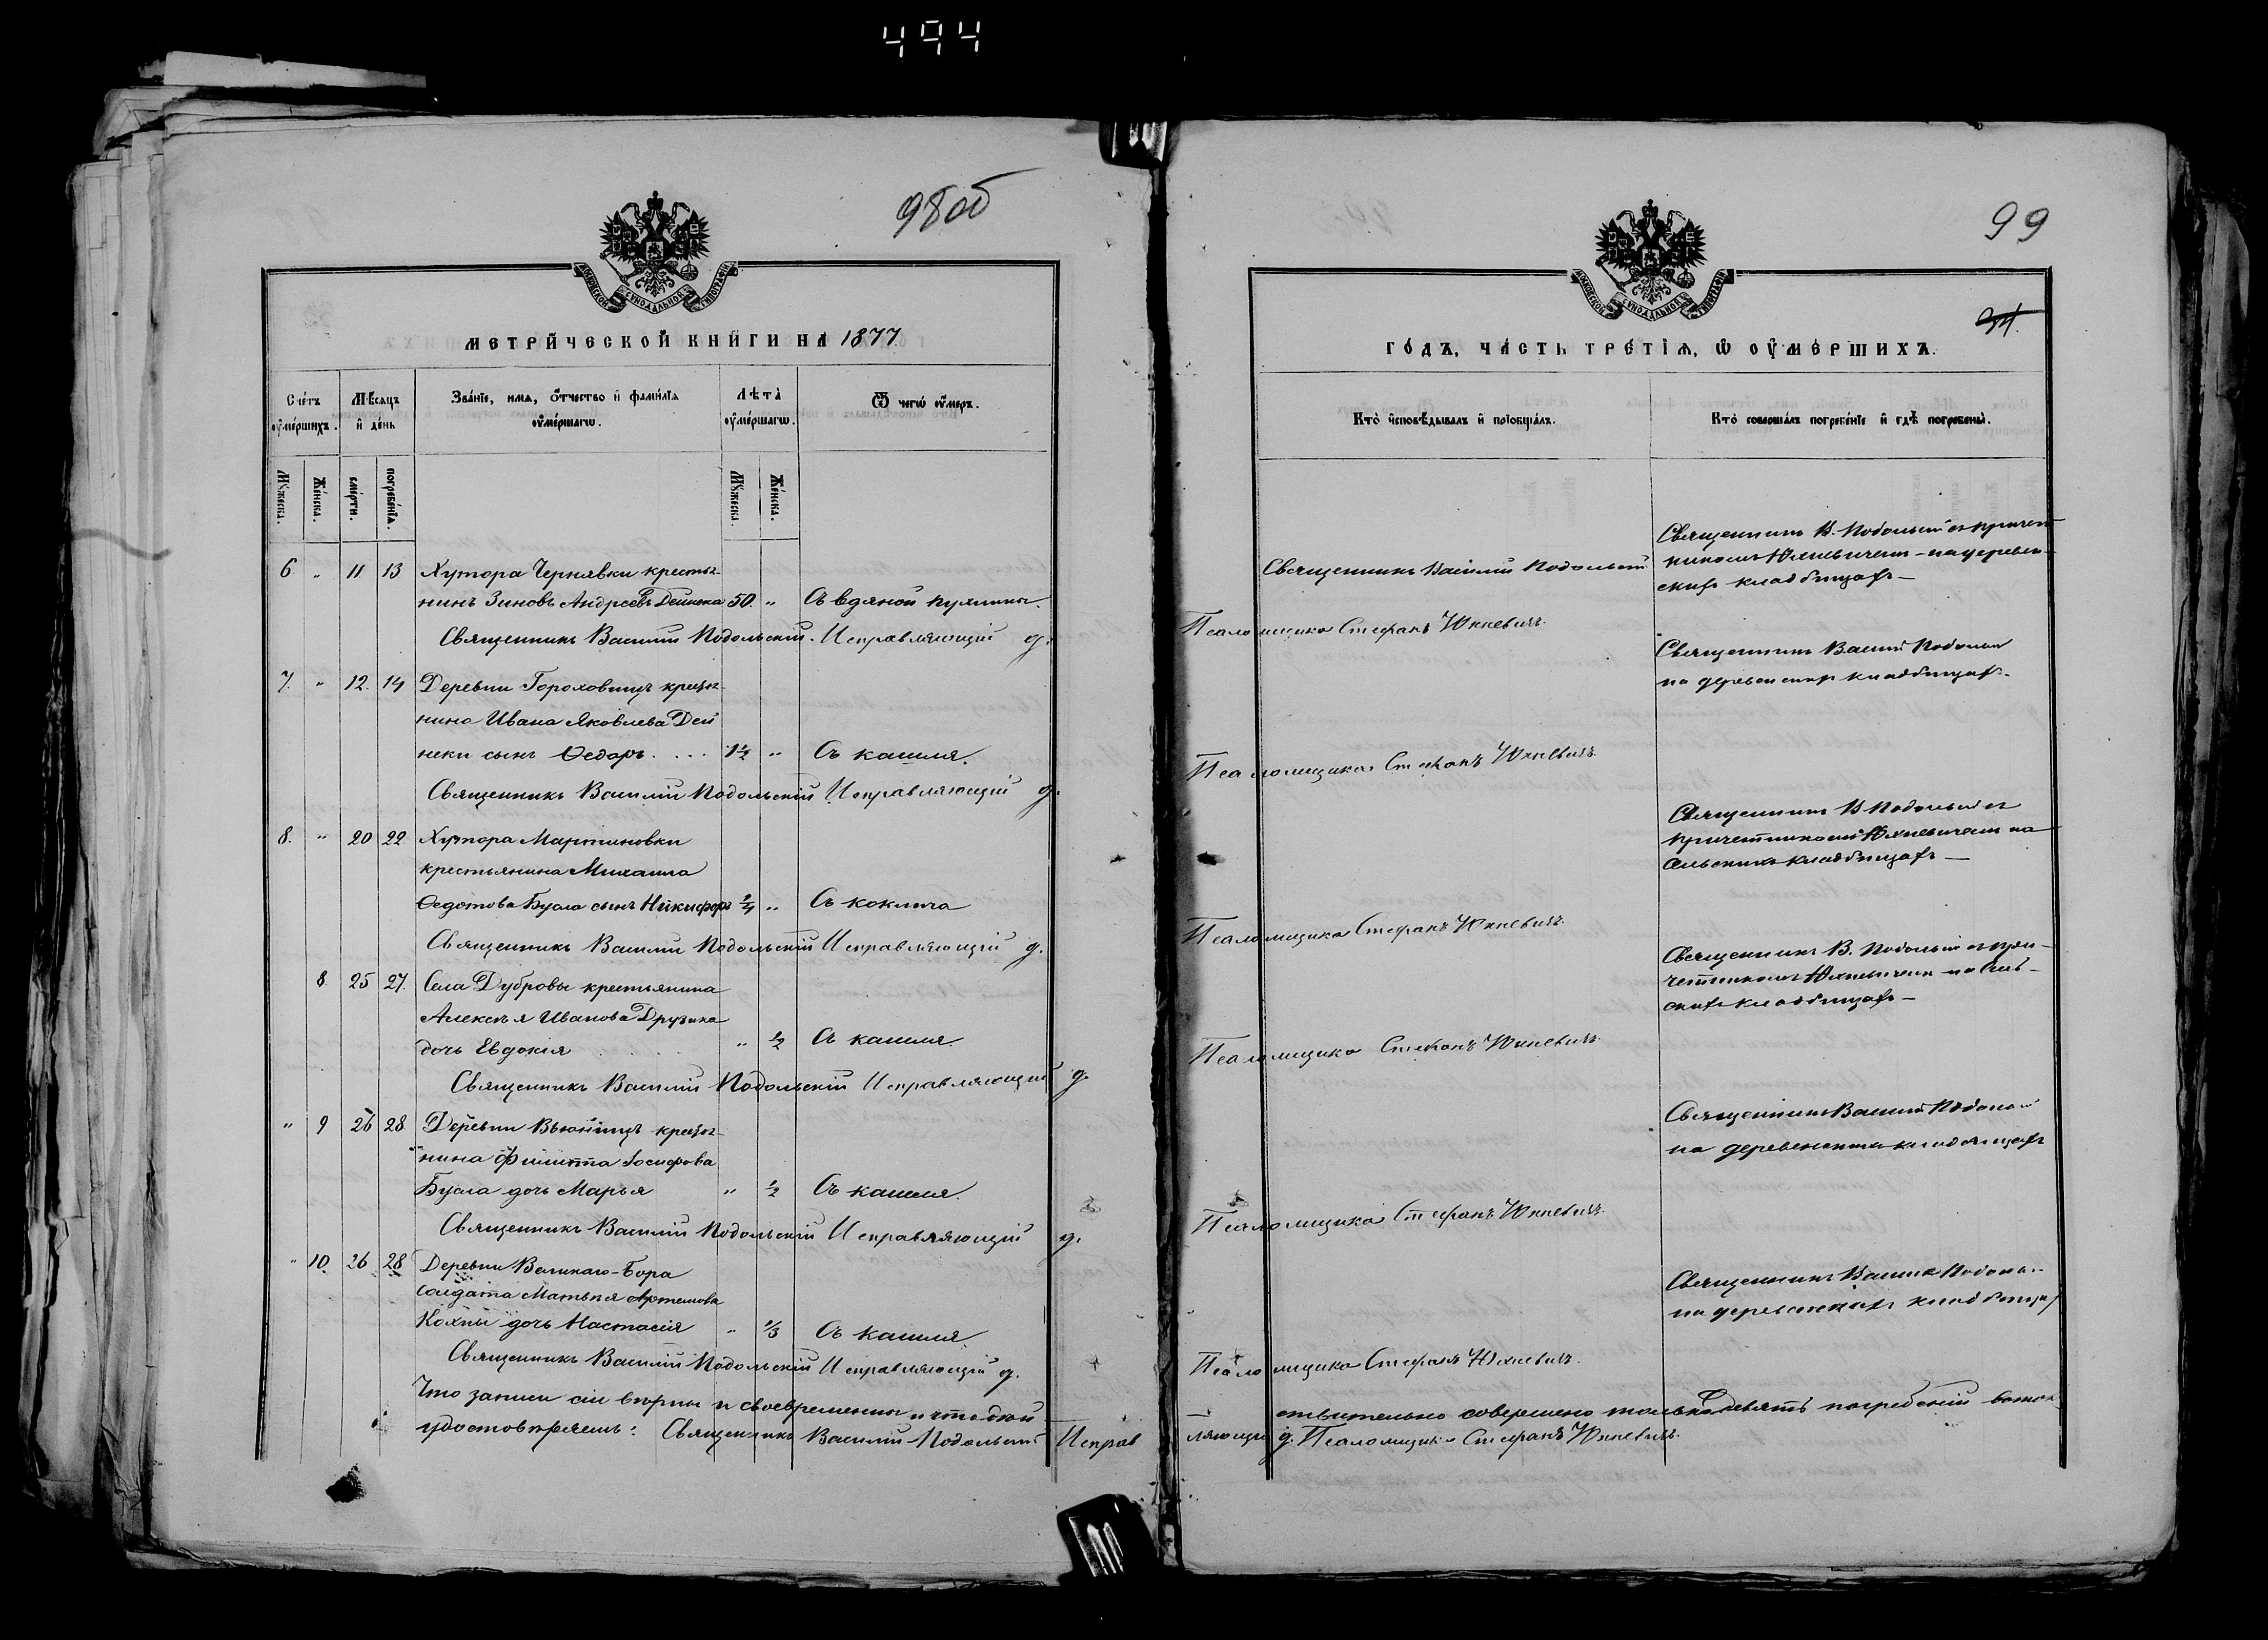 494
98об
МОСКОВСКОЙ СѴНОДАЛЬНОЙ ТИПОГРАФІИ
МЕТРИ́ЧЕСКОЙ КНИ́ГИ НА 1877
Сче́тъ ᲂу҆ме́ршихъ.
Мѣ́сяцъ и҆ де́нь
Зва́нїе, имѧ, ѻ҆́тчество и҆ фами́лїѧ ᲂу҆ме́ршагѡ.
Лѣ́та ᲂу҆ме́ршагѡ.
Ѿ чегѡ̀ ᲂу҆́меръ.
Мꙋ́жеска.
Же́нска.
сме́рти.
погребе́нїѧ.
Мꙋ́жеска.
Же́нска.
6 " 11 13 Хутора Чернявки крестья-
нинъ Зиновъ Андреевъ Дейнека 50. "
Священникъ Василій Подольскій. Исправляющій д.
7. " 12. 14 Деревни Гороховищъ крестья-
нина Ивана Яковлева Дей
неки сынъ Ѳедоръ. . . . 1½ " Съ кашля.
Священникъ Василій Подольскій Исправляющій д.
8. " 20 22 Хутора Мартиновки
крестьянина Михаила
Ѳедотова Бусла сынъ Никифоръ ¼ " Съ коклюша
Священникъ Василій Подольскій Исправляющій д.
8 25 27. Села Дубровы крестьянина
Алексѣя Иванова Друзика
дочь Евдокія " ½ Съ кашля.
Священникъ Василій Подольскій Исправляющій д.
" 9 26 28 Деревни Вьюнищъ крестья-
нина Филиппа Іосифова
Бусла дочь Марья " ½ Съ кашля.
Священникъ Василій Подольскій Исправляющій д.
" 10. 26 28 Деревни Великаго-Бора
солдата Матвѣя Артемова
Кохны дочь Настасія " 1/3 Съ кашля
Священникъ Василій Подольскій Исправляющій д.
Что записи сіи вѣрны и своевременны и что дѣй
удостовѣряемъ: Священникъ Василій Подольскій Исправ
99
МОСКОВСКОЙ СѴНОДАЛЬНОЙ ТИПОГРАФІИ
ГО́ДЪ, ЧА́СТЬ ТРЕ́ТЇѦ, Ѡ҆ ОУ҆МЕ́РШИХЪ.
Кто̀ и҆сповѣ́дывалъ и҆ прїѻбща́лъ.
Кто̀ соверша́лъ погребе́нїе и҆ гдѣ̀ погребены̀.
Священникъ Василій Подольскій
Священникъ В. Подольскій съ причет
никомъ Юхневичемъ – на деревен-
скихъ кладбищахъ –
Псаломщика Стефанъ Юхневичъ.
Священникъ Василій Подольскій
на деревенскихъ кладбищахъ.
Псаломщика Стефанъ Юхневичъ.
Священникъ В. Подольскій съ
причетникомъ Юхневичемъ на
сельскихъ кладбищахъ –
Псаломщика Стефанъ Юхневичъ.
Священникъ В. Подольскій съ при-
четникомъ Юхневичемъ на сель-
скихъ кладбищахъ –
Псаломщика Стефанъ Юхневичъ.
Священникъ Василій Подольскій
на деревенскихъ кладбищахъ
Псаломщика Стефанъ Юхневичъ.
Священникъ Василій Подоль..
на деревенскихъ кладбищах
Псаломщика Стефанъ Юхневичъ.
ствительно совершено только девять погребеній
ляющій д. Псаломщика Стефанъ Юхневичъ.